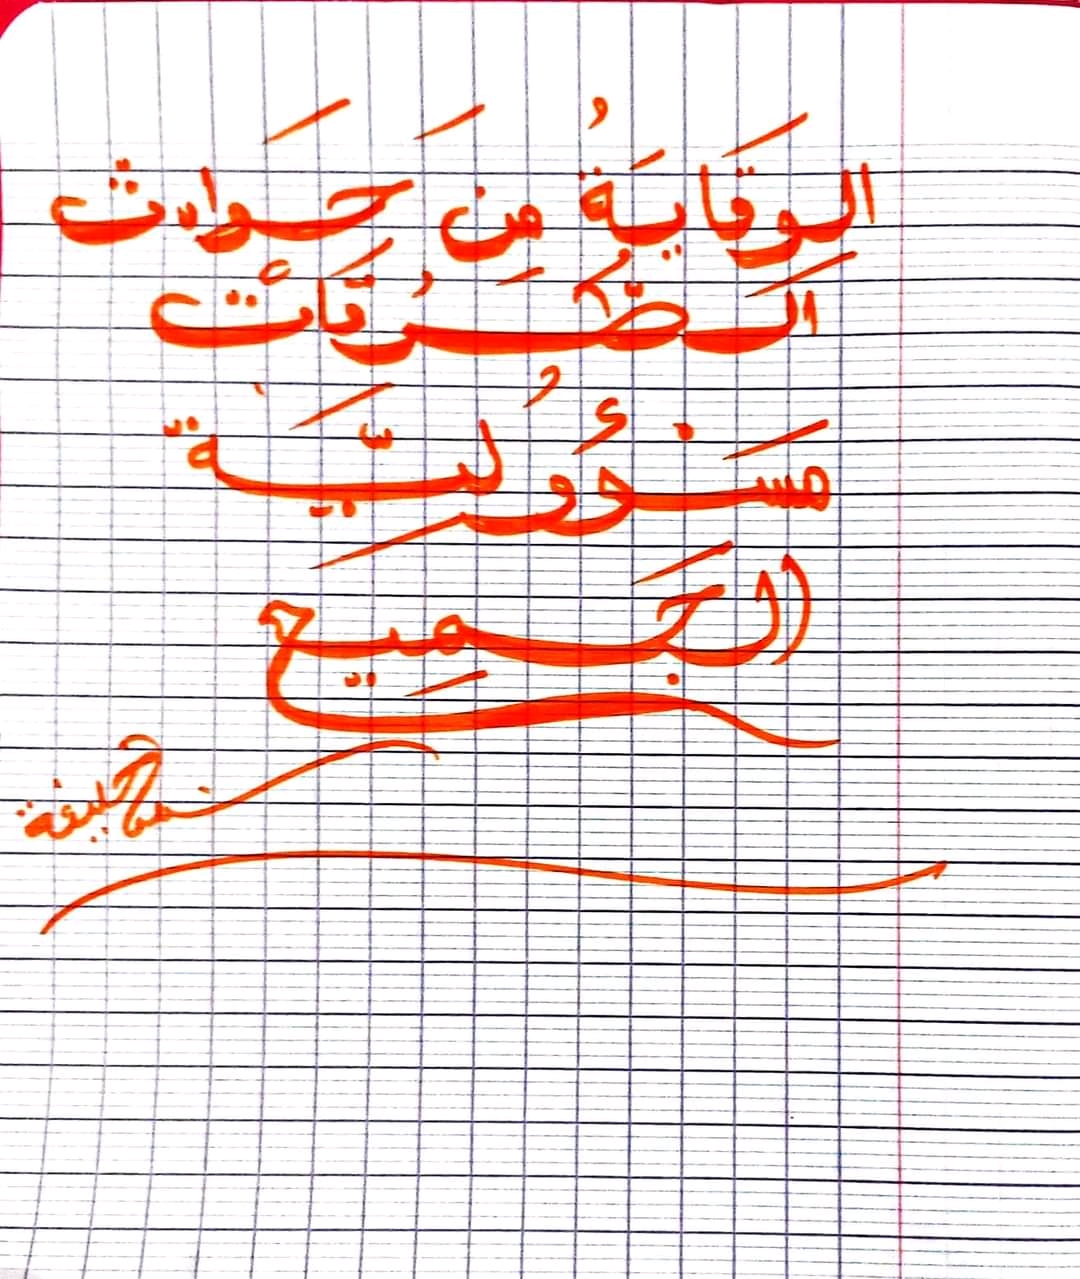 الوَقايَةُ مِنَ حَوَادث
الَطُّرُقَات
مَسْؤُوليَّة
الجَمِيع